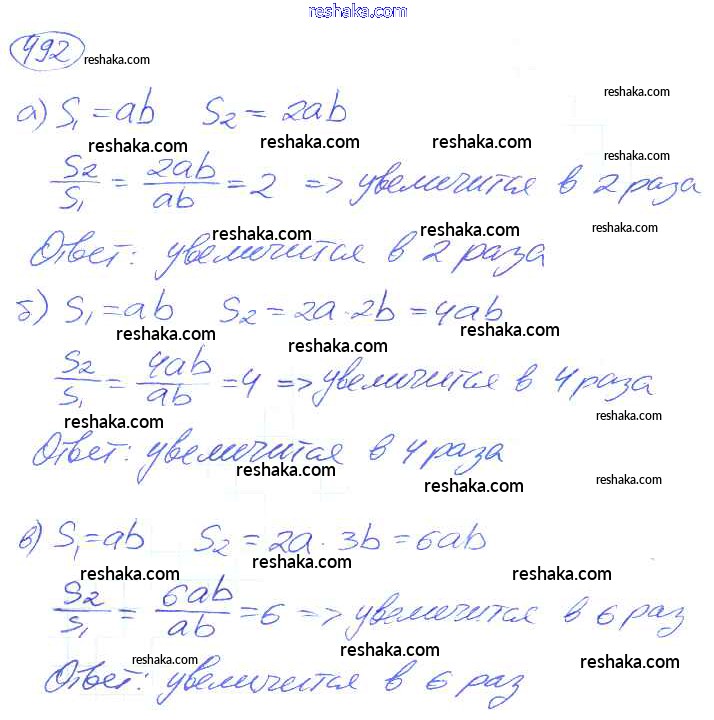 reshaka.com
492 reshaka.com
reshaka.com
а) S₁ = ab S₂ = 2ab
reshaka.com reshaka.com reshaka.com
reshaka.com
S₂/S₁ = 2ab/ab = 2 => увеличится в 2 раза
reshaka.com reshaka.com reshaka.com
Ответ: увеличится в 2 раза
reshaka.com
б) S₁ = ab S₂ = 2a · 2b = 4ab
reshaka.com reshaka.com
reshaka.com
S₂/S₁ = 4ab/ab = 4 => увеличится в 4 раза
reshaka.com reshaka.com
Ответ: увеличится в 4 раза
reshaka.com reshaka.com reshaka.com
в) S₁ = ab S₂ = 2a · 3b = 6ab
reshaka.com reshaka.com
S₂/S₁ = 6ab/ab = 6 => увеличится в 6 раз
reshaka.com reshaka.com reshaka.com
Ответ: увеличится в 6 раз